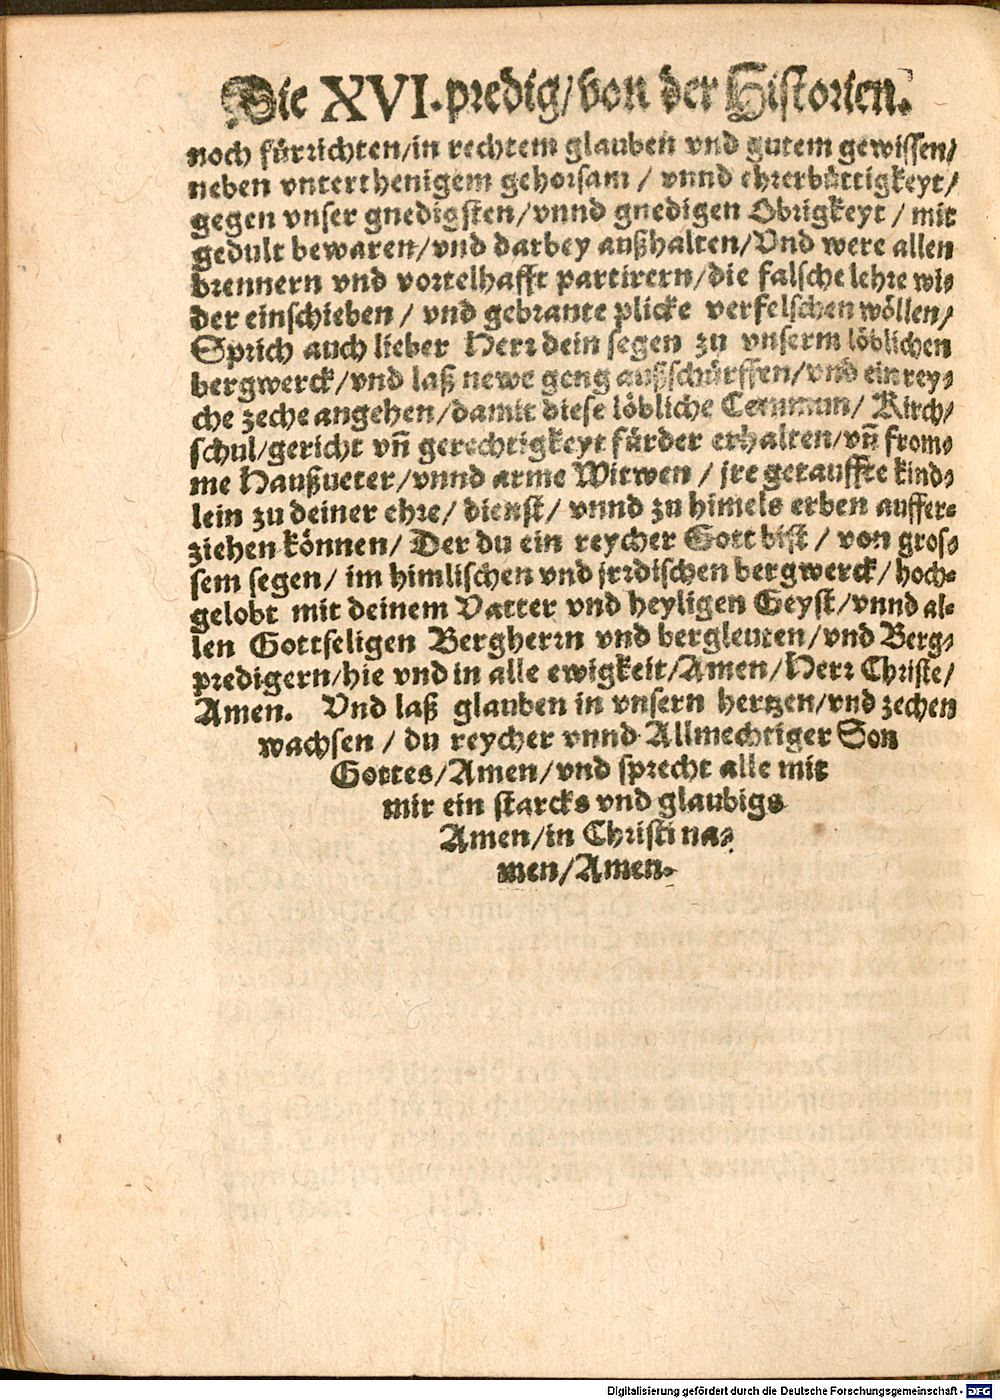 Die XVI. predig/ von der Historien.
noch fürrichten/in rechtem glauben vnd gutem gewissen/
neben vnterthenigem gehorsam / vnnd ehrerbüttigkeyt/
gegen vnser gnedigsten/vnnd gnedigen Obrigkeyt / mit
gedult bewaren/vnd darbey außhalten/Vnd were allen
brennern vnd vortelhafft partirern/die falsche lehre wi-
der einschieben / vnd gebrante plicke verfelschen wöllen/
Sprich auch lieber Herr dein segen zu vnserm löblichen
bergwerck/vnd laß newe geng außschürffen/vnd ein rey-
che zeche angehen/damit diese löbliche Commun/ Kirch/
schul/gericht vñ gerechtigkeyt fürder erhalten/vñ from-
me Haußueter/vnnd arme Witwen / jre getauffte kind-
lein zu deiner ehre/ dienst/ vnnd zu himels erben auffer-
ziehen können/ Der du ein reycher Gott bist / von gros-
sem segen/ im himlischen vnd jrrdischen bergwerck/ hoch-
gelobt mit deinem Vatter vnd heyligen Geyst/vnnd al-
len Gottseligen Bergherrn vnd bergleuten/vnd Berg-
predigern/hie vnd in alle ewigkeit/Amen/Herr Christe/
Amen. Vnd laß glauben in vnsern hertzen/vnd zechen
wachsen / du reycher vnnd Allmechtiger Son
Gottes/Amen/vnd sprecht alle mit
mir ein starcks vnd glaubigs
Amen/in Christi na-
men/Amen.
Digitalisierung gefördert durch die Deutsche Forschungsgemeinschaft - DFG